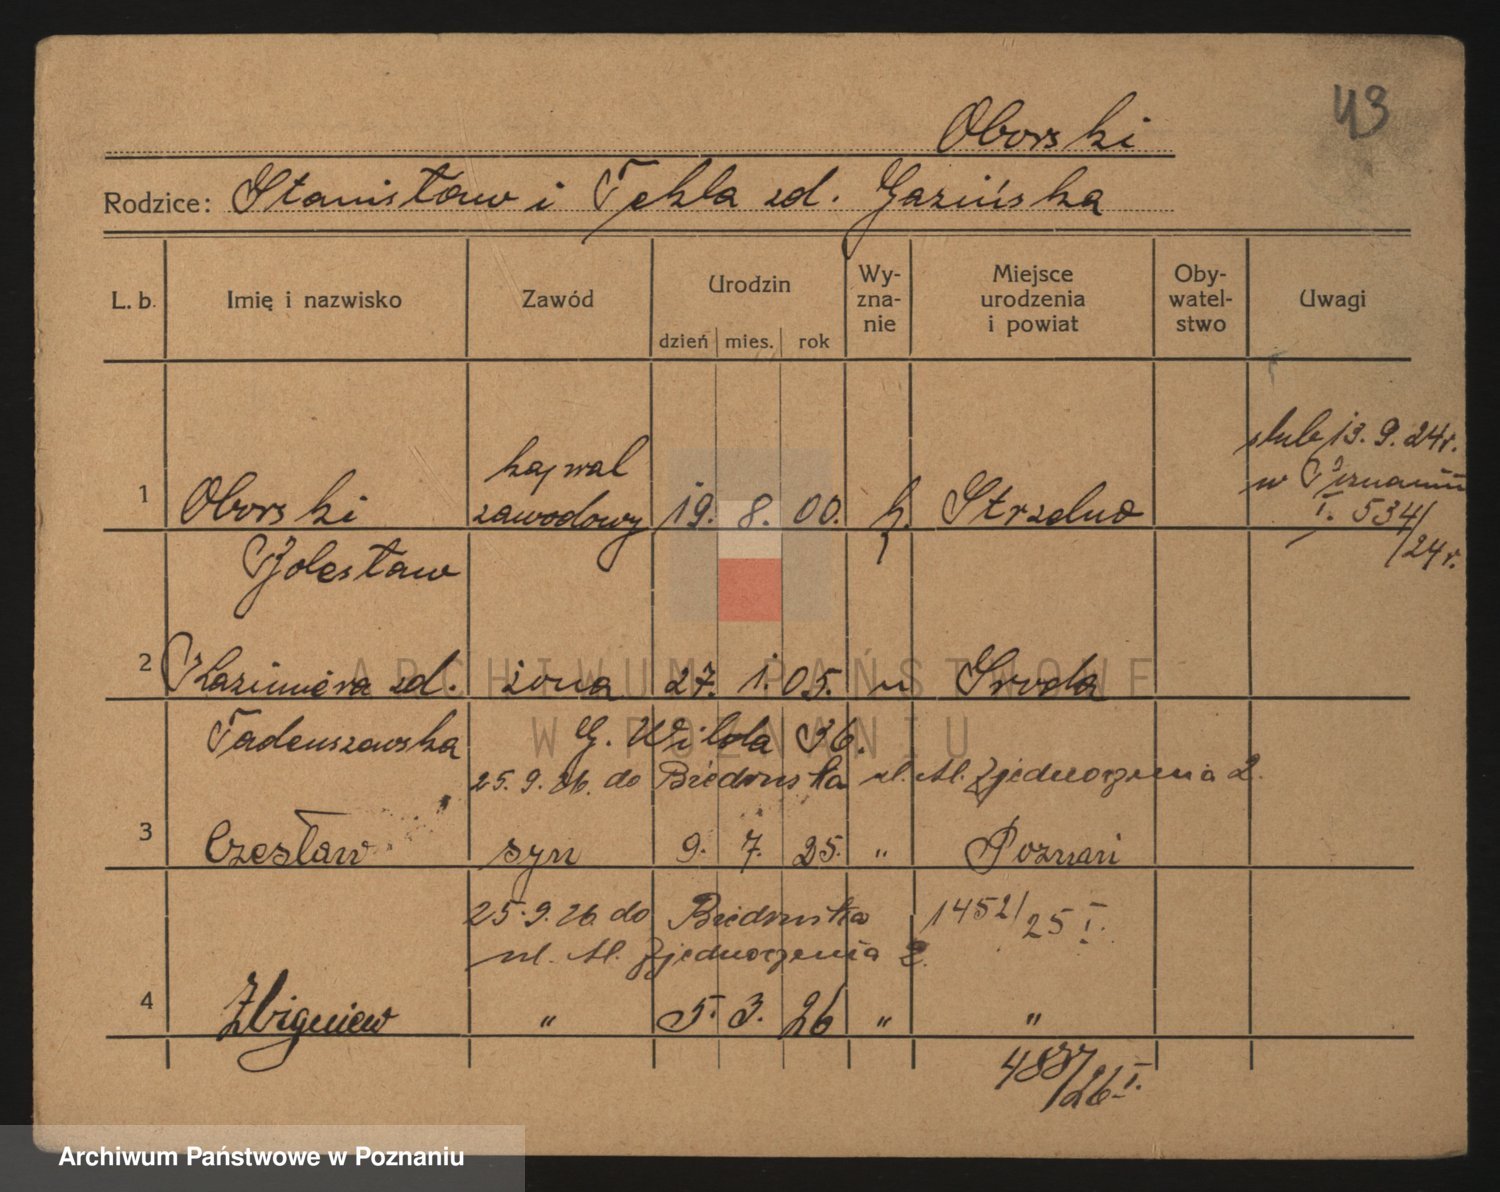 43
Oborski
Rodzice: Stanisław i Tekla zd. Gazińska
L. b. Imię i nazwisko Zawód Urodzin dzień mies. rok Wy-zna-nie Miejsce urodzenia i powiat Oby-watel-stwo Uwagi
ślub 13. 9. 24 r.
w Poznaniu
I. 534/24 r.
kapral
1 Oborski zawodowy 19. 8. 00. k. Strzelno
Bolesław
2 Kazimiera zd. żona 27. 1. 05. " Środa
Tadeuszewska G. Wilda 36.
25. 9. 26. do Biedruska ul. Al. Zjednoczenia 2.
3 Czesław syn 9. 7. 25. " Poznań
25. 9. 26 do Biedruska 1452/25 I.
ul. Al. Zjednoczenia 2.
4 Zbigniew " 5. 3. 26 " "
487/26 I.
ARCHIWUM PAŃSTWOWE
W POZNANIU
Archiwum Państwowe w Poznaniu